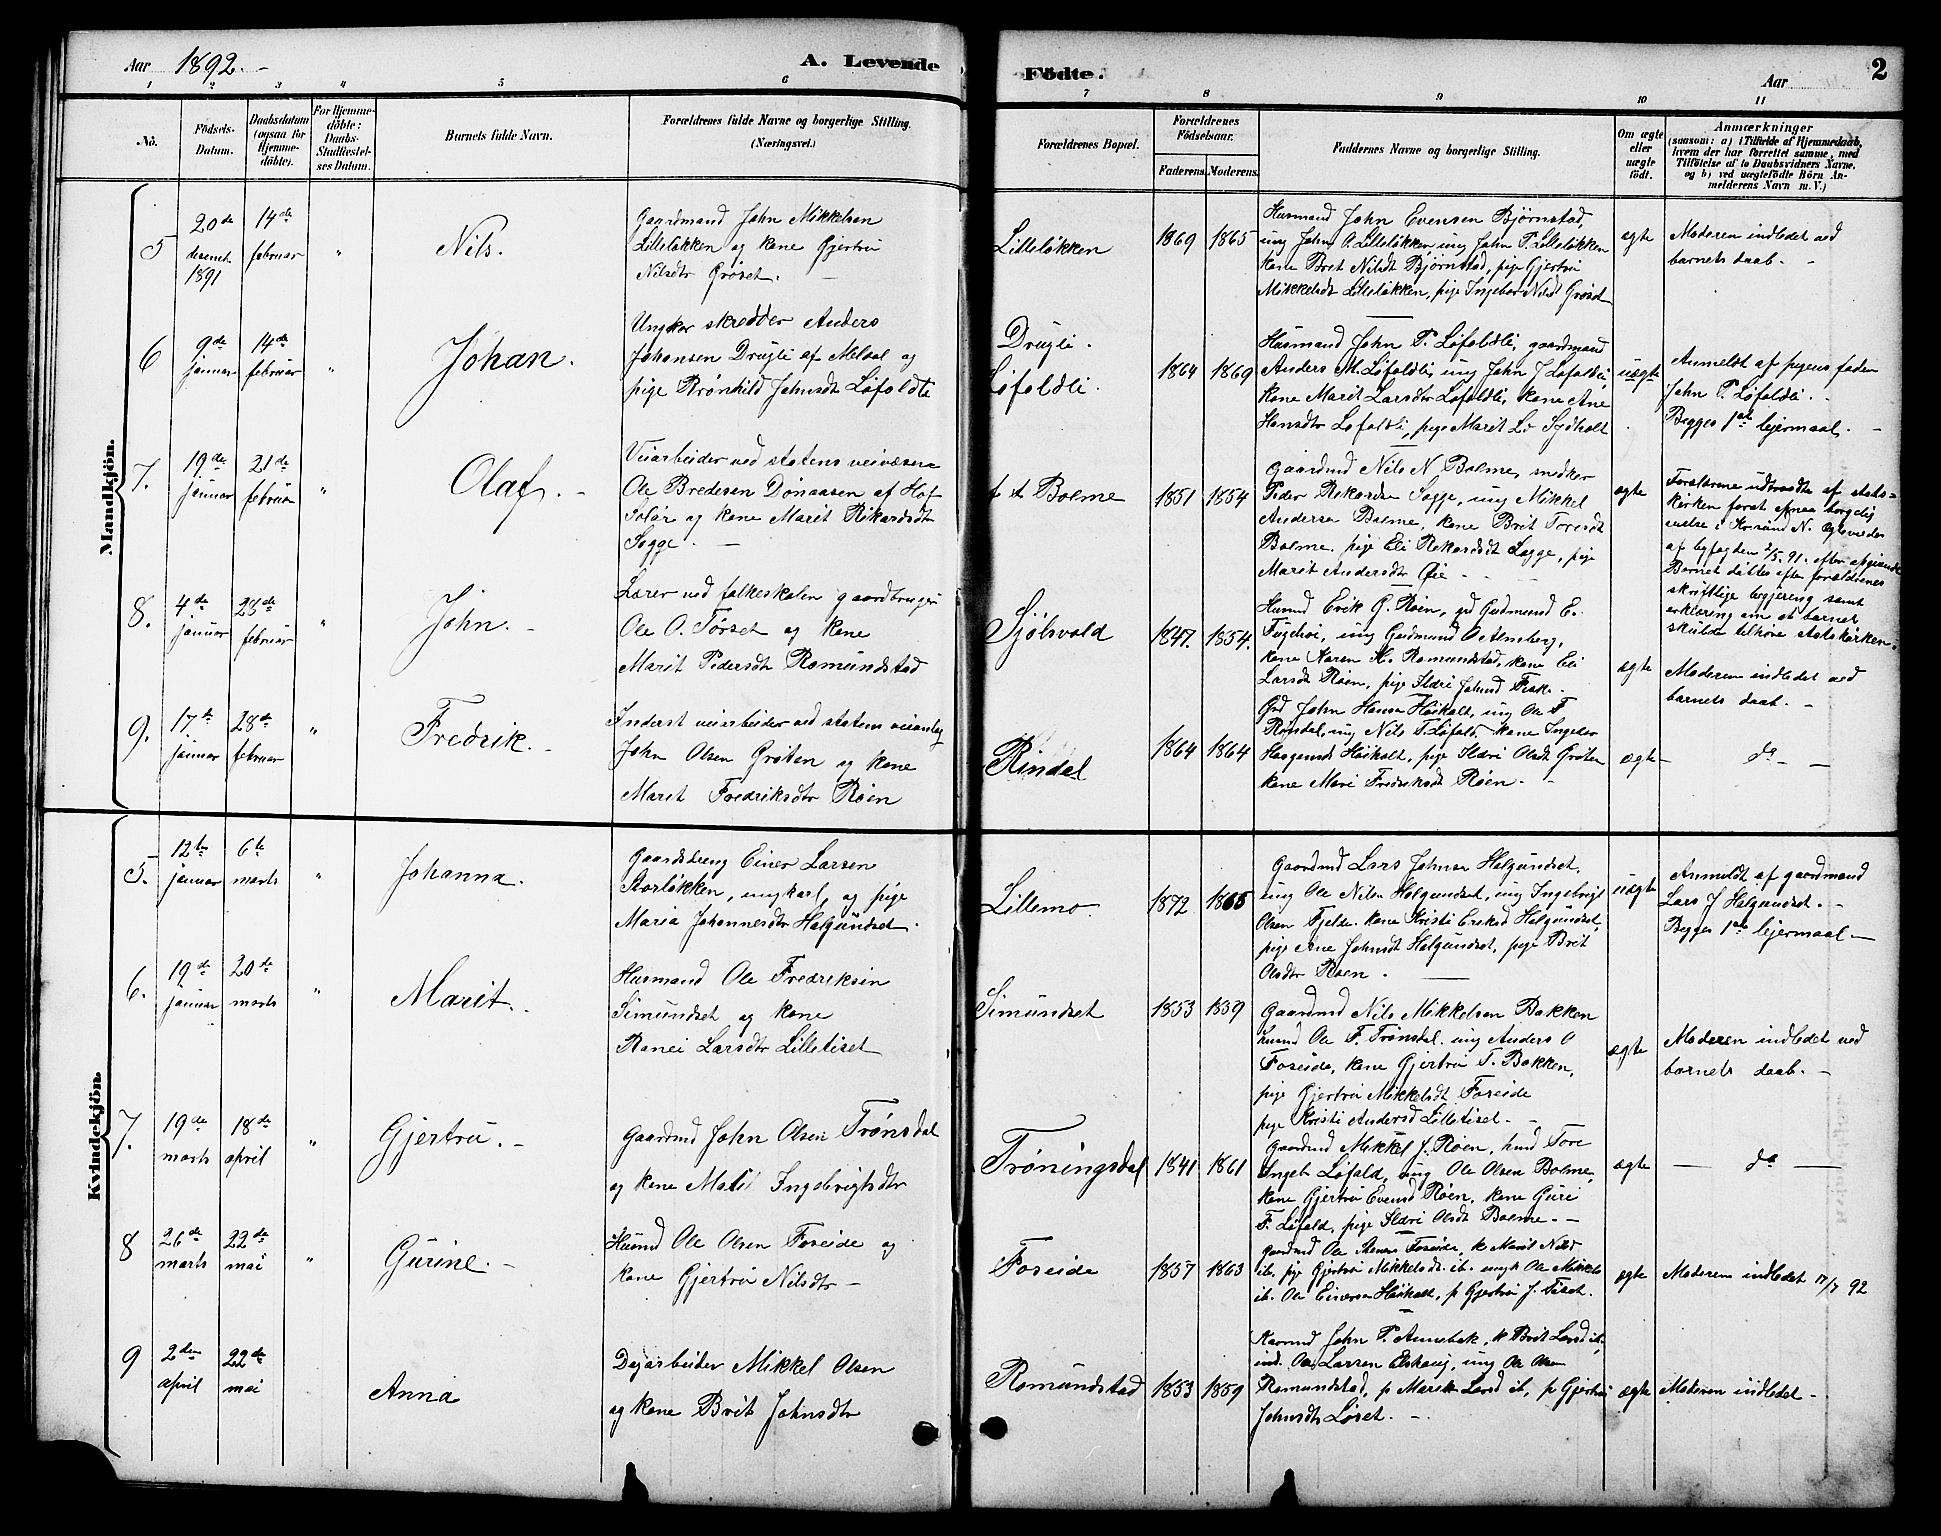 Aar 1892. -
A. Levende
Födte.
Aar
2
1 2 3 4 5 6 7 8 9 10 11
No.
Födsels-
Datum.
Daabsdatum
(ogsaa for
Hjemme-
döbte).
For Hjemme-
döbte:
Daabs-
Stadfæstel-
ses Datum.
Barnets fulde Navn.
Forældrenes fulde Navne og borgerlige Stilling.
(Næringsvei.)
Forældrenes Bopæl.
Forældrenes
Födselsaar.
Faderens.
Moderens.
Faddernes Navne og borgerlige Stilling.
Om ægte
eller
uægte
födt.
Anmærkninger
(saasom: a) i Tilfælde af Hjemmedaab,
hvem der har forrettet samme, med
Tilföielse af to Daabsvidners Navne,
og b) ved uægtefödte Börn An-
melderens Navn m. V.)
Mandkjön.
5
20de
decembr
1891
14de
februar
"
Nils.
Gaardmand John Mikkelsen
Lilleløkken og kone Gjertru
Nilsdtr Grøset. -
Lilleløkken
1869
1865
Husmand John Evensen Bjørnstad,
ung John O. Lilleløkken ung John P. Lilleløkken
kone Brit Nilsdt Bjørnstad, pige Gjertru
Mikkelsdt Lilleløkken, pige Ingebor Nilsd Grøset
ægte
Moderen indledet ved
barnets daab. -
6
9de
januar
14de
februar
"
Johan.
Ungkar skredder Anders
Johansen Drugli af Meldal og
pige Brønhild Johnsdt Løfoldli
Drugli.
Løfoldli.
1864
1869
Husmand John P. Løfoldli, gaardmand
Anders M. Løfoldli, ung John J Løfoldli,
kone Marit Larsdtr Løfoldli, kone Ane
Hansdtr Løfoldli, pige Marit Lo Sydhalt
uægte
Anmeldt af pigens fader
John P. Løfoldli. -
Begges 1ste lejermaal. -
7.
19de
januar
21de
februar
"
Olaf. -
Veiarbeider ved statens veivæsen
Ole Bredesen Dønaasen af Hof
Solør og kone Marit Rikardsdtr
Sogge. -
t t Bolme
1851
1854
Gaardmd Nils N. Bolme, snedker
Peder Rekordsn Sogge, ung Mikkel
Andersen Bolme, kone Brit Toresdt
Bolme. pige Eli Rekordsdt Sogge, pige
Marit Andersdtr Øie -
ægte
Forældrene udtraadte af stats-
kirken forat opnaa borgerlig
vielse i Krsund N. Ægteviedes
af byfogden 2/5 91. efter afgivende
Barnet døbtes efter forældrenes
skriftlige begjering samt
erklæring om at barnet
skulde tilhøre statskirken.
8.
4de
januar
28de
februar
"
John. -
Lærer ved folkeskolen gaardbruger
Ole O. Tørset og kone
Marit Pedersdt Romundstad
Sjølsvold
1847.
1854.
Husmd Erik G. Røen, gd Gudmund E.
Fugelsøi, ung Gudmund O Almberg,
kone Karen H. Romundstad, kone Eli
Larsdt Røen, pige Ildri Johnsd Fiske.
ægte
Moderen indledet ved
barnets daab. -
9.
17de
januar
28de
februar
"
Fredrik. -
Inderst veiarbeider ved statens veianlæg
John Olsen Grøten og kone
Marit Fredriksdtr Røen
Rindal
1864
1864
Gd John Hansn Heikalt, ung Ole F.
Røndal, ung Nils T. Løfald, kone Ingebor
Haagensd Heikalt, pige Ildri Olsdt Grøten
kone Mari Fredriksdt Røen. -
ægte -
do -
Kvindekjön.
5.
12te
januar
6te
marts
"
Johanna.
Gaardsdreng Einer Larsen
Storløkken, ungkarl, og pige
Maria Johannesdtr Helgundset.
Lillemo.
1872
1865
Gaardmd Lars Johnsn Halgundset,
ung Ole Nilsn Halgundset, ung Ingebrigt
Olsen Fjelde. kone Kristi Eriksd Halgundset,
pige Ane Johnsdt Halgundset, pige Brit
Olsdtr Røen.
uægte
Anmeldt af gaardmand
Lars J Halgundset. -
Begges 1ste lejermaal -
6.
19de
januar
20de
marts
"
Marit. -
Husmand Ole Fredriksen
Simundset og kone
Ranei Larsdtr Lilletiset
Simundset
1853
1859
Gaardmd Nils Mikkelsen Bakken
husmd Ole F. Trønsdal. ung Anders O
Foseide, kone Gjertru T. Bakken,
pige Gjertru Mikkelsdt Foseide
pige Kristi Andersd Lilletiset. -
ægte
Moderen indledet ved
barnets daab. -
7.
19de
marts
18de
april
"
Gjertru. -
Gaardmd John Olsen Trønsdal
og kone Malil Ingebrigtsdtr
Trøningsdal
1841
1861
Gaardmd Mikkel J. Røen, husd Tore
Ingebr Løfald, ung Ole Olsen Bolme,
kone Gjertru Evensd Røen, kone Guri
F. Løfald, pige Ildri Olsdt Bolme. -
ægte
- do -
8
26de
marts
22de
mai
"
Gurine. -
Husmd Ole Olsen Foseide og
kone Gjertru Nilsdtr -
Foseide
1857
1863
Gaardmd Ole Steners Foseide, k Marit Nilsd
ib. pige Gjertru Mikkelsdt. ib. ungk Ole Mikkels
ib. Ole Einersen Heikalt, p Gjertru J. Tiset.
ægte
Moderen indledet 17/7 92
9
2den
april
22de
mai
Anna
Dagarbeider Mikkel Olsen
og kone Brit Johnsdtr
Romundstad
1853
1859
Kaarmd John P. Annebak, k Brit Larsd ib.
ind. Ole Larsen Elshaug, ung Ole Olsen
Romundstad, p Marit Larsd ib, p Gjertru
Johnsdtr Løset. -
ægte
Moderen indledet -